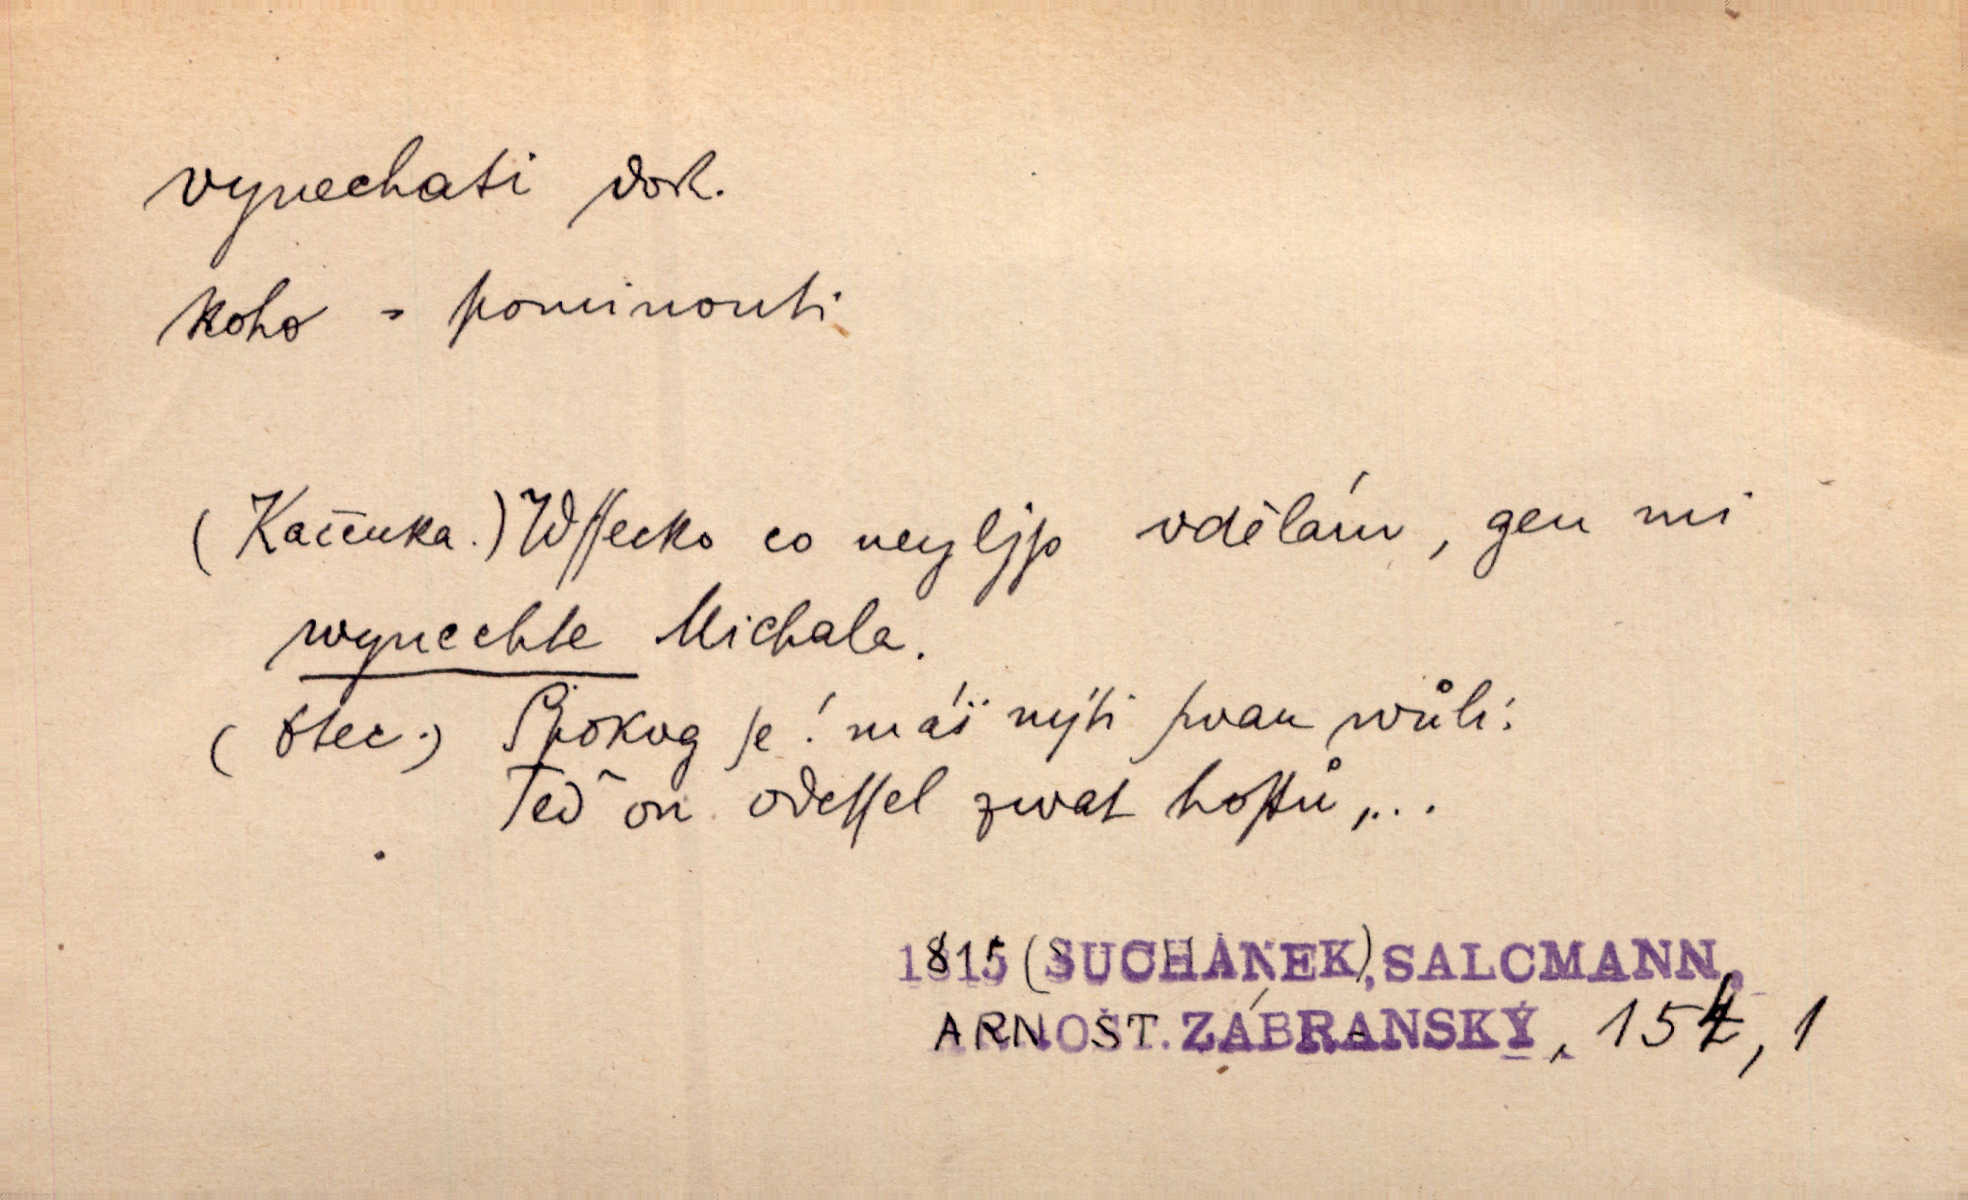 vynechati dok.
koho = pominouti
(Kačenka.) Wſſecko co neyljp vdělám, gen mi
wynechte Michala.
(Otec.) Spokog ſe! máš mjti ſvau wůli:
Teď on odeſſel zwat hoſtů,...
1815 (SUCHÁNEK), SALCMANN,
ARNOŠT. ZÁBRANSKÝ, 154, 1